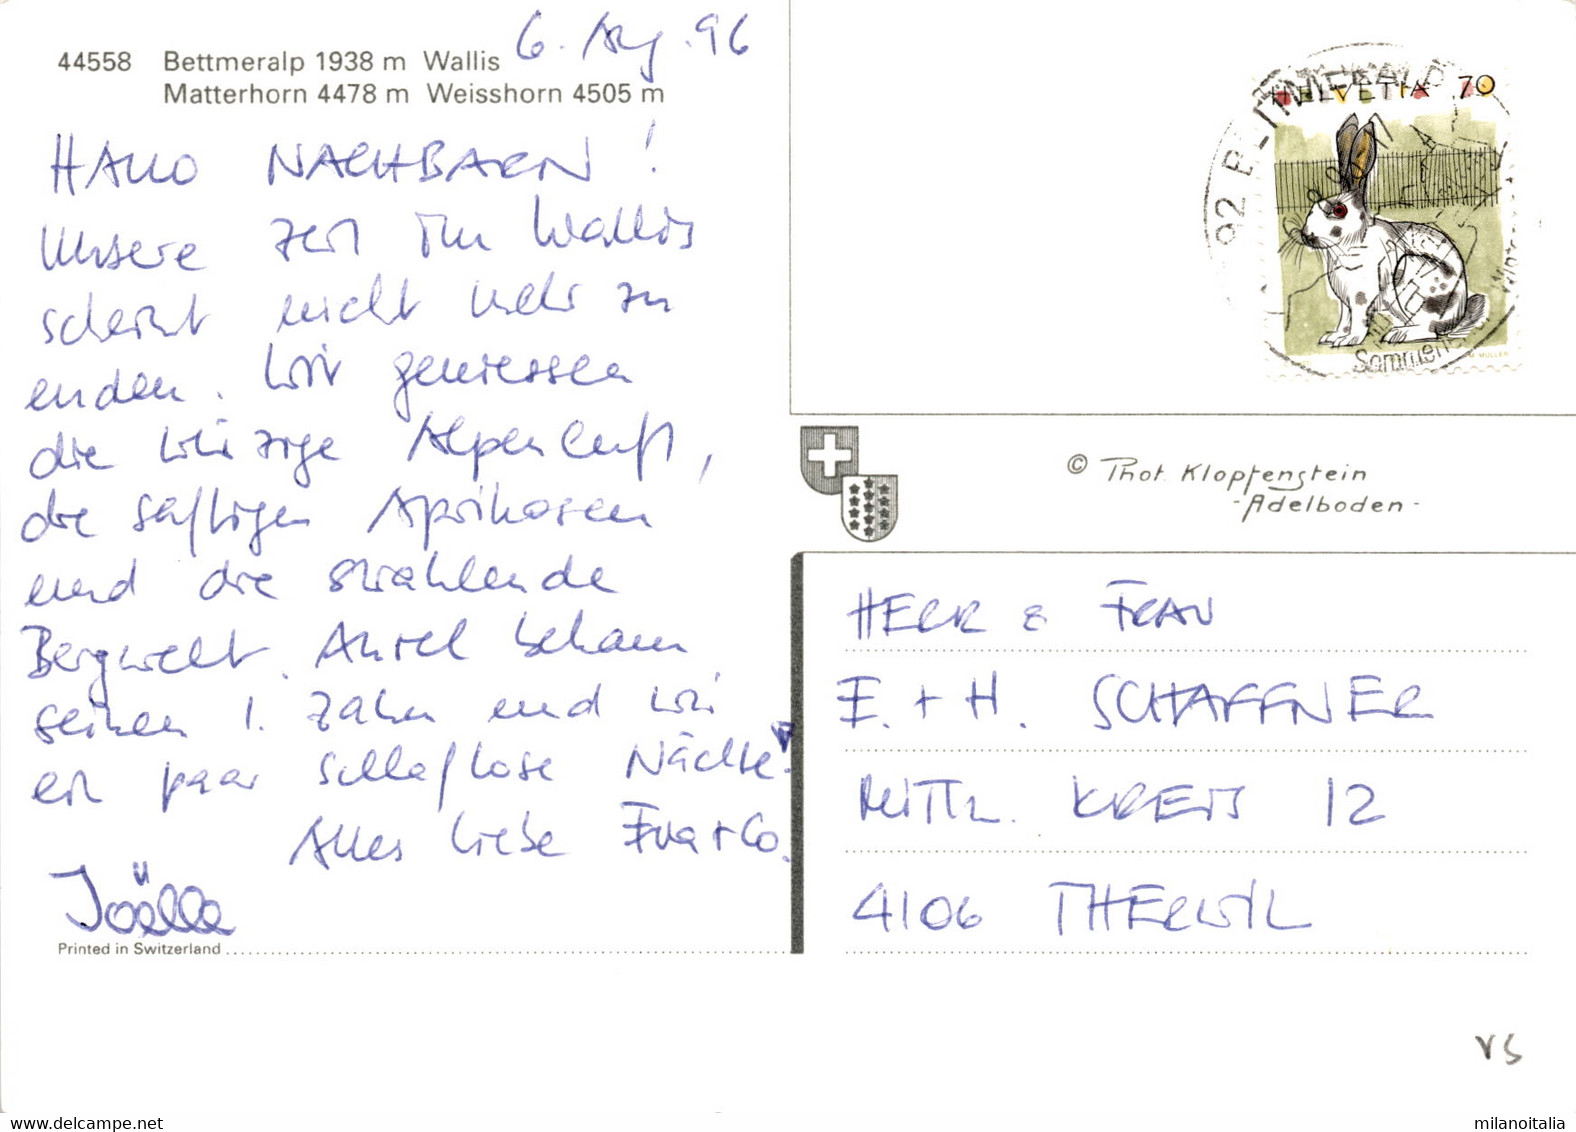 44558 Bettmeralp 1938 m Wallis
Matterhorn 4478 m Weisshorn 4505 m
6. Aug. 96
HALLO NACHBARN!
Unsere Zeit im Wallis
scheint nicht mehr zu
enden. Wir geniessen
die würzige Alpenluft,
die saftigen Aprikosen
und die strahlende
Bergwelt. Aurel bekam
seinen 1. Zahn und wir
ein paar schlaflose Nächte.
Alles Liebe Eva + Co.
Joëlle
Printed in Switzerland
HELVETIA 70
M. MÜLLER
92 BETTMERALP
Sommer
Winter
© Phot. Klopfenstein
- Adelboden -
HERR & FRAU
E. + H. SCHAFFNER
MITTL. KREIS 12
4106 THERWIL
VS
milanoitalia